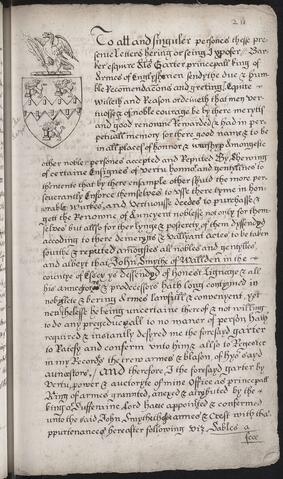 To all and singuler persones these pre-
sente Letters hering or seing Xpofer Bar-
ker esquire Als Garter principall king of
Armes of Englyshmen sendythe due & hum-
ble Recomendacons and greting, Equite
willeth and Reason ordeineth that men ver-
tuosse & of noble courage be by there merytts
and good renowne Rewarded & had in per-
petuall memory for there good name & to be
in all places of honnor & wurshyp Amongeste
other noble persones accepted and Reputed By shewing
of certaine Ensignes of vertu honnor and gentyllnes to
thentente that by there ensample other shuld the more per-
severantly Enforce themselves to Vsse there tyme in hon-
orable workes and Vertuousse deedes to purchasse &
gett the Renowne of Auncyent noblesse not only for them-
selves but allso for ther lynge & posterety of them dessendyd
according to there demerytts & Vallyant actes to be taken
and reputed amongest all nobles and gentylles
and albeyt that John Smythe of Wallden in the
countye of Essex ys dessendyd of honest Lignage & all
his & predecessors hath long contynued in
nobylyte & bering Armes lawfull & convenyent, yet
nevthelesse he being uncertaine therof & not willing
to do any prejudice all to no maner of person hath
required & instantly desyred me the forsayd garter
to Ratefy and conferm vnto hym & allso to Regester
in my Records the trew armes & blason of hys sayd
auncestors, And therefore I the forsayd garter by
Vertu, power & auctoryte of mine Office as principall
King of armes graunted, anexed & atrybuted by the
king o Soveraine Lord have appointed & confermed
unto the said John Smythe thes armes & Crest with tha
ppurtenances hereafter following viz Sables a
fece